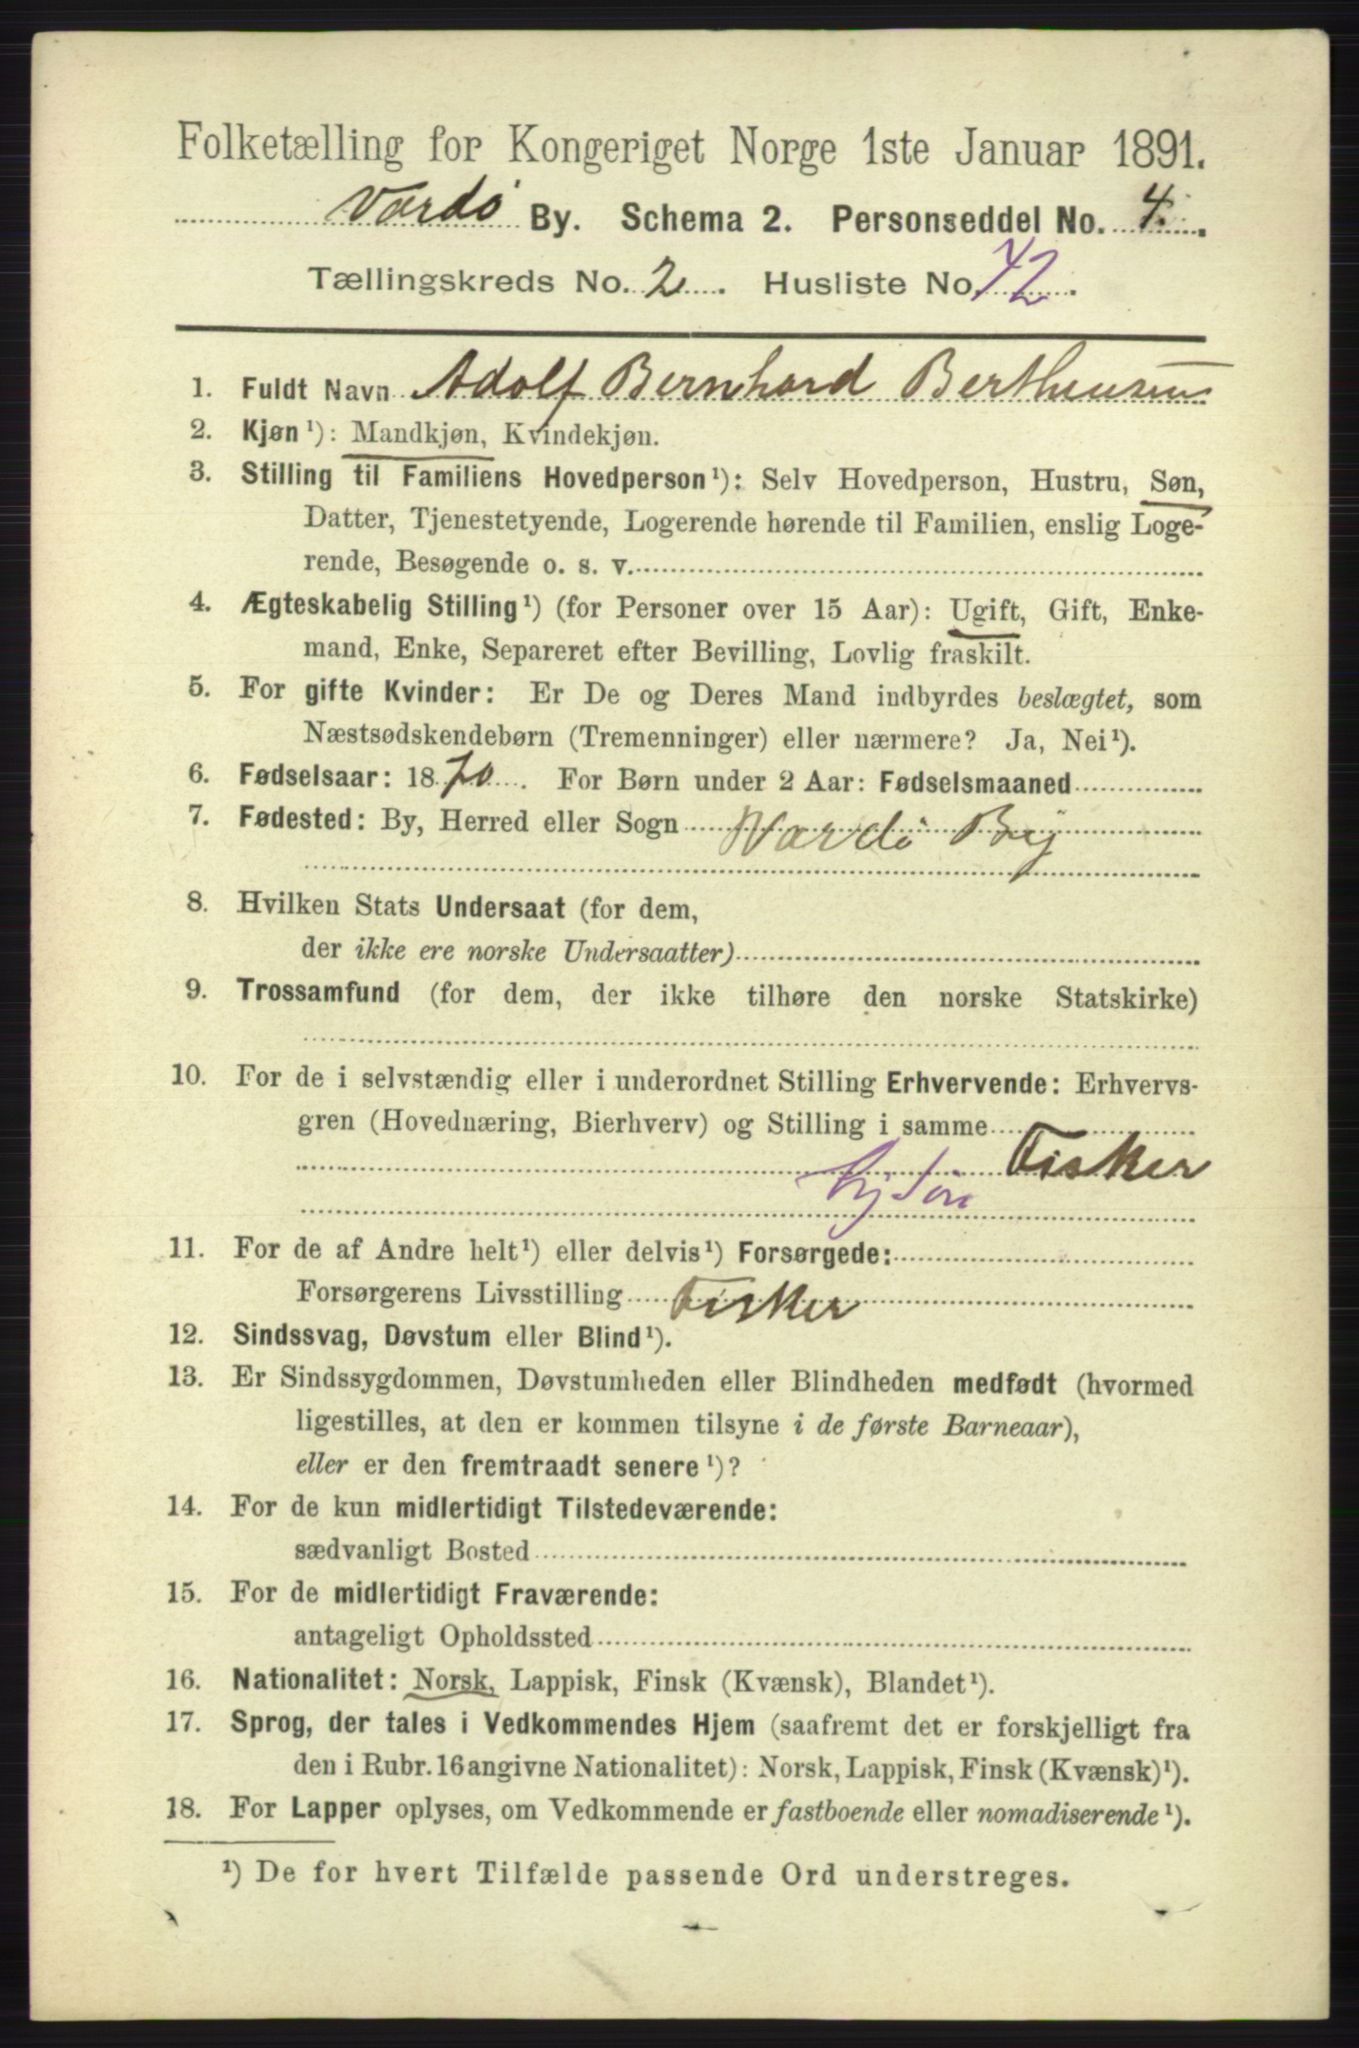 Folketælling for Kongeriget Norge 1ste Januar 1891.
Vardø By. Schema 2. Personseddel No. 4.
Tællingskreds No. 2. Husliste No. 42.
1. Fuldt Navn Adolf Bernhard Bertheusen
2. Kjøn¹): Mandkjøn, Kvindekjøn.
3. Stilling til Familiens Hovedperson¹): Selv Hovedperson, Hustru, Søn,
Datter, Tjenestetyende, Logerende hørende til Familien, enslig Loge-
rende, Besøgende o. s. v.
4. Ægteskabelig Stilling¹) (for Personer over 15 Aar): Ugift, Gift, Enke-
mand, Enke, Separeret efter Bevilling, Lovlig fraskilt.
5. For gifte Kvinder: Er De og Deres Mand indbyrdes beslægtet, som
Næstsødskendebørn (Tremenninger) eller nærmere? Ja, Nei¹).
6. Fødselsaar: 1870. For Børn under 2 Aar: Fødselsmaaned
7. Fødested: By, Herred eller Sogn Wardø By
8. Hvilken Stats Undersaat (for dem,
der ikke ere norske Undersaatter)
9. Trossamfund (for dem, der ikke tilhøre den norske Statskirke)
10. For de i selvstændig eller i underordnet Stilling Erhvervende: Erhvervs-
gren (Hovednæring, Bierhverv) og Stilling i samme
Fisker
11. For de af Andre helt¹) eller delvis¹) Forsørgede:
Forsørgerens Livsstilling Fisker
12. Sindssvag, Døvstum eller Blind¹).
13. Er Sindssygdommen, Døvstumheden eller Blindheden medfødt (hvormed
ligestilles, at den er kommen tilsyne i de første Barneaar),
eller er den fremtraadt senere¹)?
14. For de kun midlertidigt Tilstedeværende:
sædvanligt Bosted
15. For de midlertidigt Fraværende:
antageligt Opholdssted
16. Nationalitet: Norsk, Lappisk, Finsk (Kvænsk), Blandet¹).
17. Sprog, der tales i Vedkommendes Hjem (saafremt det er forskjelligt fra
den i Rubr. 16 angivne Nationalitet): Norsk, Lappisk, Finsk (Kvænsk)¹).
18. For Lapper oplyses, om Vedkommende er fastboende eller nomadiserende¹).
¹) De for hvert Tilfælde passende Ord understreges.